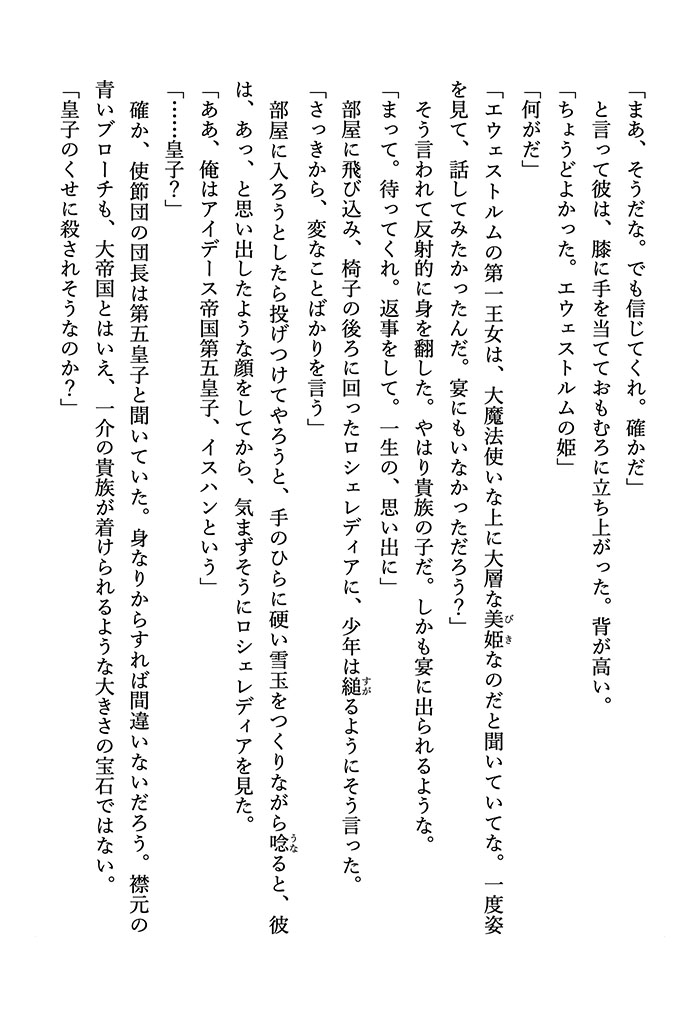 「まあ、そうだな。でも信じてくれ。確かだ」
と言って彼は、膝に手を当てておもむろに立ち上がった。背が高い。
「ちょうどよかった。エウェストルムの姫」
「何がだ」
「エウェストルムの第一王女は、大魔法使いな上に大層な美姫なのだと聞いていてな。一度姿
を見て、話してみたかったんだ。宴にもいなかっただろう？」
そう言われて反射的に身を翻した。やはり貴族の子だ。しかも宴に出られるような。
「まって。待ってくれ。返事をして。一生の、思い出に」
部屋に飛び込み、椅子の後ろに回ったロシェレディアに、少年は縋るようにそう言った。
「さっきから、変なことばかりを言う」
部屋に入ろうとしたら投げつけてやろうと、手のひらに硬い雪玉をつくりながら唸ると、彼
は、あっ、と思い出したような顔をしてから、気まずそうにロシェレディアを見た。
「ああ、俺はアイデース帝国第五皇子、イスハンという」
「……皇子？」
確か、使節団の団長は第五皇子と聞いていた。身なりからすれば間違いないだろう。襟元の
青いブローチも、大帝国とはいえ、一介の貴族が着けられるような大きさの宝石ではない。
「皇子のくせに殺されそうなのか？」
びき
すが
うな